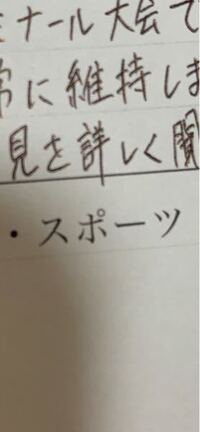 ミナール大会で
常に維持しま
見を詳しく聞
・スポーツ